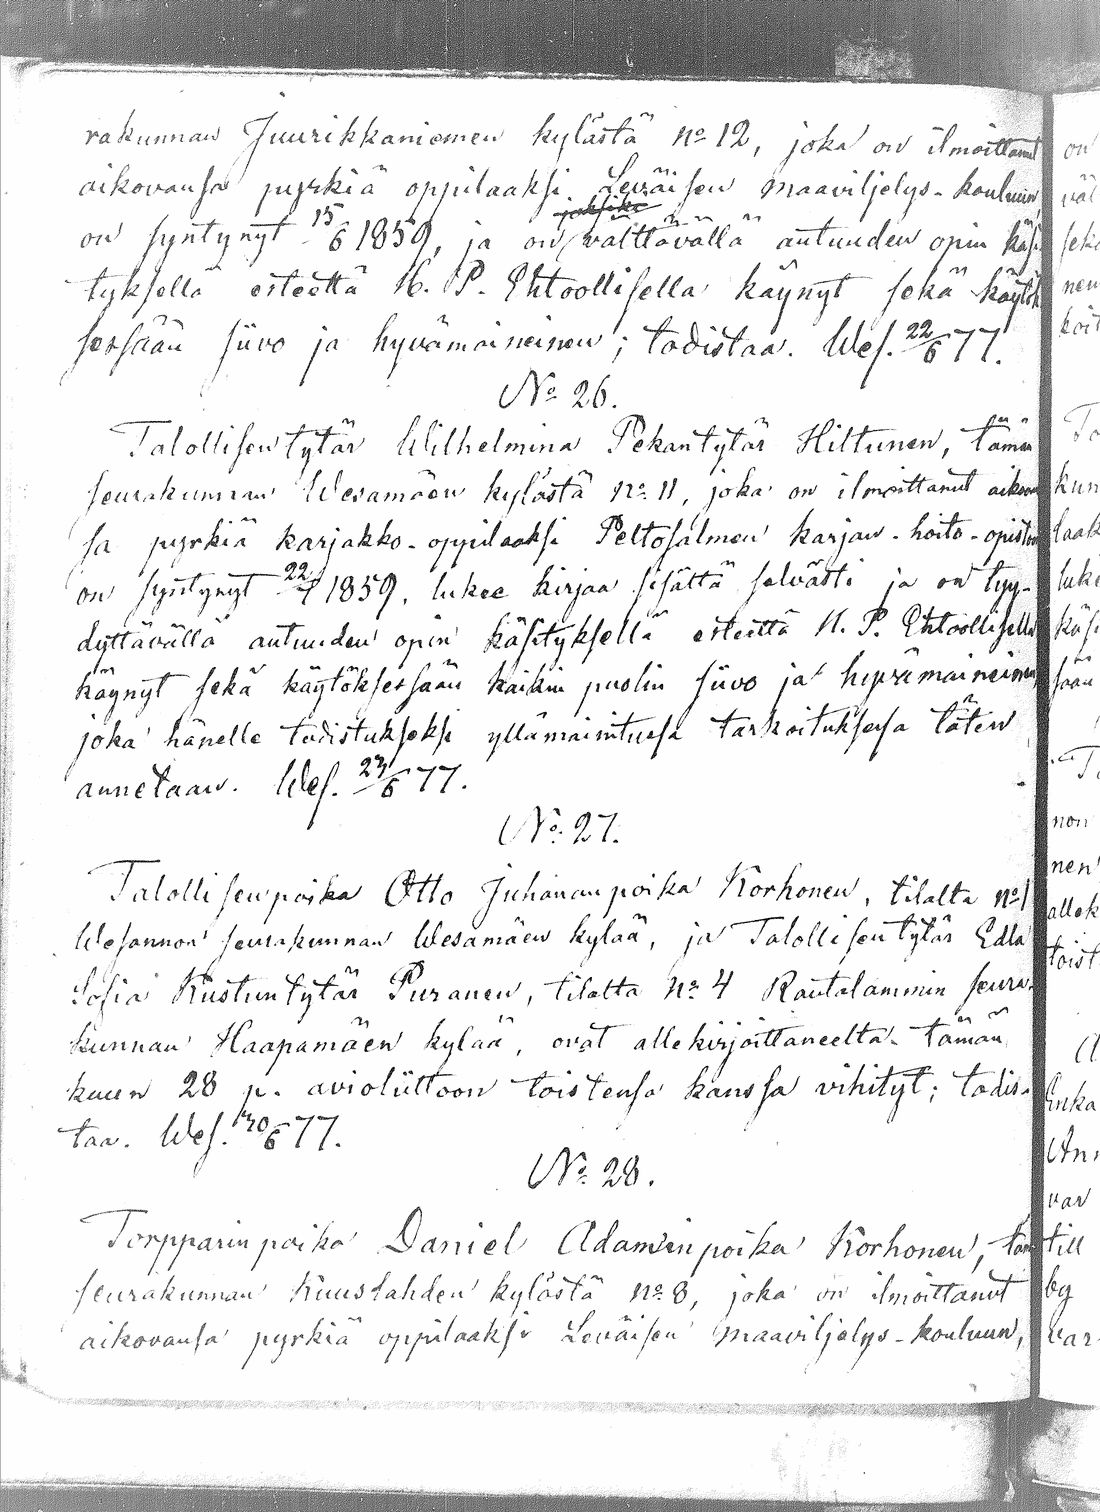 rakunnan Juurikkaniemen kylästä No 12, joka on ilmoittanut
aikovansa pyrkiä oppilaaksi Leväisen maaviljelys-kouluun,
on syntynyt 15/6 1859, ja on välttävällä autuuden opin käsi
tyksellä esteettä H. P. Ehtoollisella käynyt sekä käytök
sessään siivo ja hyvämaineinen; todistaa. Wes. 22/6 77.
No 26.
Talollisentytär Wilhelmina Pekantytär Hiltunen, tämän
seurakunnan Wesamäen kylästä No 11, joka on ilmoittanut aikovan
sa pyrkiä karjakko-oppilaaksi Peltosalmen karjan-hoito-opistoon
on syntynyt 1859, lukee kirjaa sisältä selvästi ja on tyy-
dyttävällä autuuden opin käsityksellä esteettä H. P. Ehtoollisella
käynyt sekä käytöksessään kaikin puolin siivo ja hyvämaineinen,
joka hänelle todistukseksi yllämainitussa tarkoituksessa täten
annetaan. Wes. 23/6 77.
No 27.
Talollisenpoika Otto Juhananpoika Korhonen, tilalta No 1
Wesannon seurakunnan Wesamäen kylää, ja Talollisentytär Edla
Sofia Kustuntytär Puranen, tilalta No 4 Rautalammin seura-
kunnan Haapamäen kylää, ovat allekirjoittaneelta tämän
kuun 28 p. avioliittoon toistensa kanssa vihityt; todis-
taa. Wes. 30/6 77.
No 28.
Torpparinpoika Daniel Adaminpoika Korhonen, täm
seurakunnan Kuuslahden kylästä No 8, joka on ilmoittanut
aikovansa pyrkiä oppilaaksi Leväisen maaviljelys-kouluun,